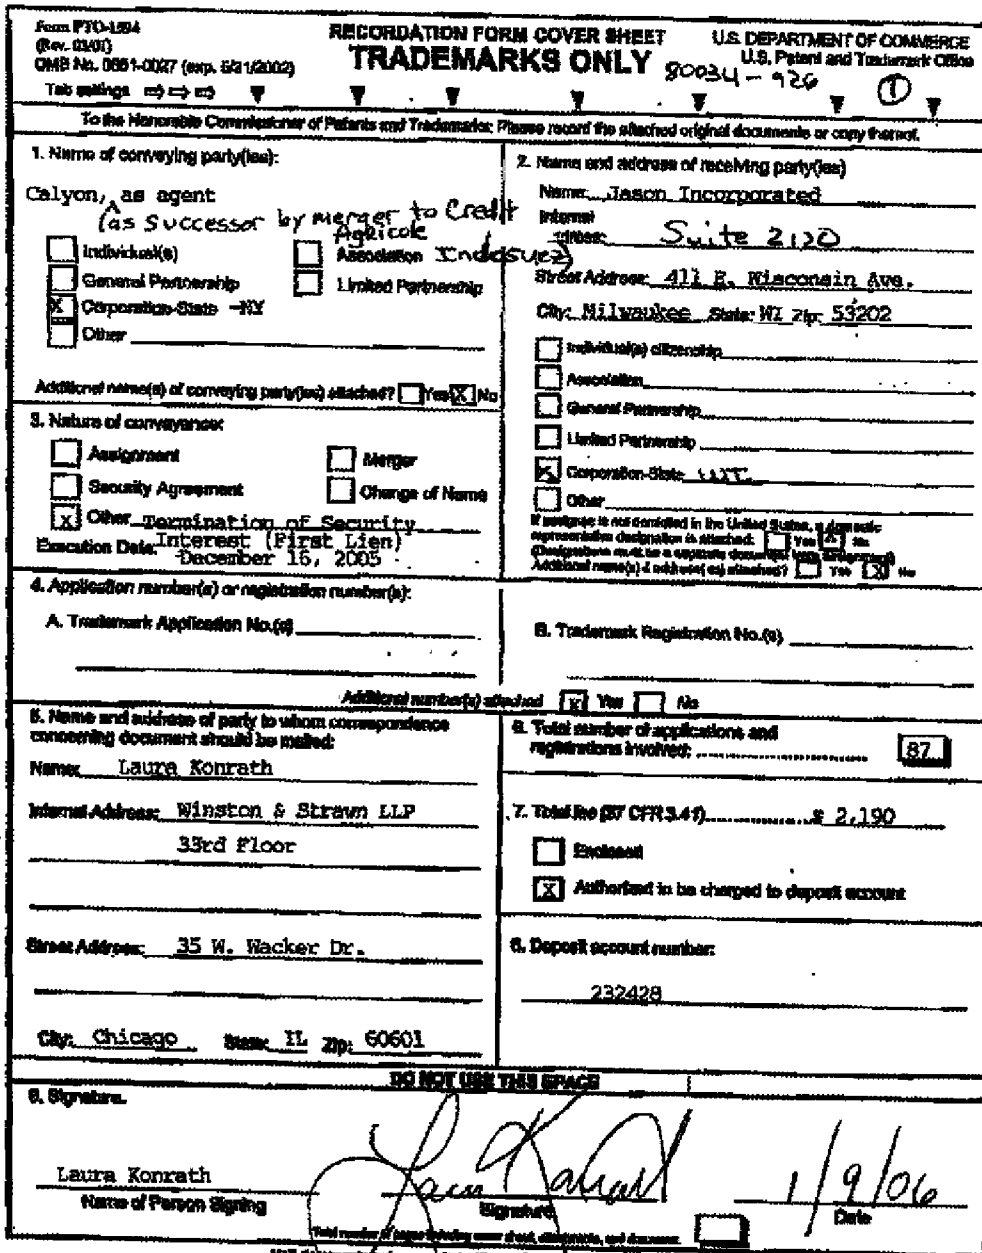 Form PTO-1594
(Rev. 03/01)
OMB No. 0651-0027 (exp. 5/31/2002)
Tab settings
RECORDATION FORM COVER SHEET
TRADEMARKS ONLY
U.S. DEPARTMENT OF COMMERCE
U.S. Patent and Trademark Office
80034-926
1
To the Honorable Commissioner of Patents and Trademarks: Please record the attached original documents or copy thereof.
1. Name of conveying party(ies):
Calyon, as agent
(as successor by merger to Credit
Agricole
Indosuez)
Individual(s)
Association
General Partnership
Limited Partnership
X Corporation-State -NY
Other
Additional name(s) of conveying party(ies) attached? Yes X No
2. Name and address of receiving party(ies)
Name: Jason Incorporated
Internal
Address: Suite 2120
Street Address: 411 E. Wisconsin Ave.
City: Milwaukee State: WI Zip: 53202
Individual(s) citizenship
Association
General Partnership
Limited Partnership
X Corporation-State
Other
If assignee is not domiciled in the United States, a domestic
representative designation is attached: Yes X No
(Designations must be a separate document from assignment)
Additional name(s) & address(es) attached? Yes X No
3. Nature of conveyance:
Assignment
Merger
Security Agreement
Change of Name
X Other Termination of Security
Interest (First Lien)
Execution Date: December 16, 2005
4. Application number(s) or registration number(s):
A. Trademark Application No.(s)
B. Trademark Registration No.(s)
Additional number(s) attached X Yes No
5. Name and address of party to whom correspondence
concerning document should be mailed:
Name: Laura Konrath
Internal Address: Winston & Strawn LLP
33rd Floor
Street Address: 35 W. Wacker Dr.
City: Chicago State: IL Zip: 60601
6. Total number of applications and
registrations involved: 87
7. Total fee (37 CFR 3.41) $ 2,190
Enclosed
X Authorized to be charged to deposit account
8. Deposit account number:
232428
DO NOT USE THIS SPACE
9. Signature.
Laura Konrath
Name of Person Signing
Laura Konrath
Signature
1/9/06
Date
Total number of pages including cover sheet, attachments, and document: